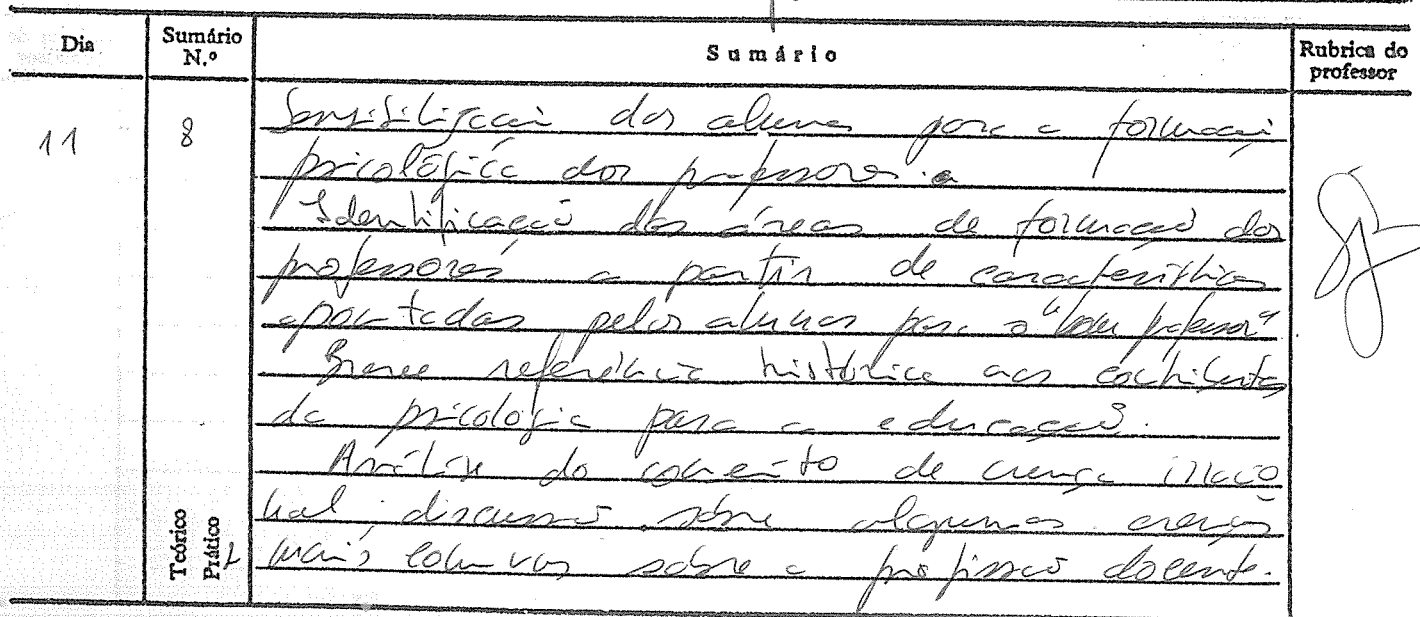 Dia
Sumário N.º
Sumário
Rubrica do professor
11
8
Sensibilização dos alunos para a formação
psicológica dos professores.
Identificação das áreas de formação dos
professores a partir de características
apontadas pelos alunos para o "bom professor".
Breve referência histórica aos contributos
da psicologia para a educação.
Análise do conceito de crença irracio
nal, discussão sobre algumas crenças
mais comuns sobre a profissão docente.
Teórico
Prático